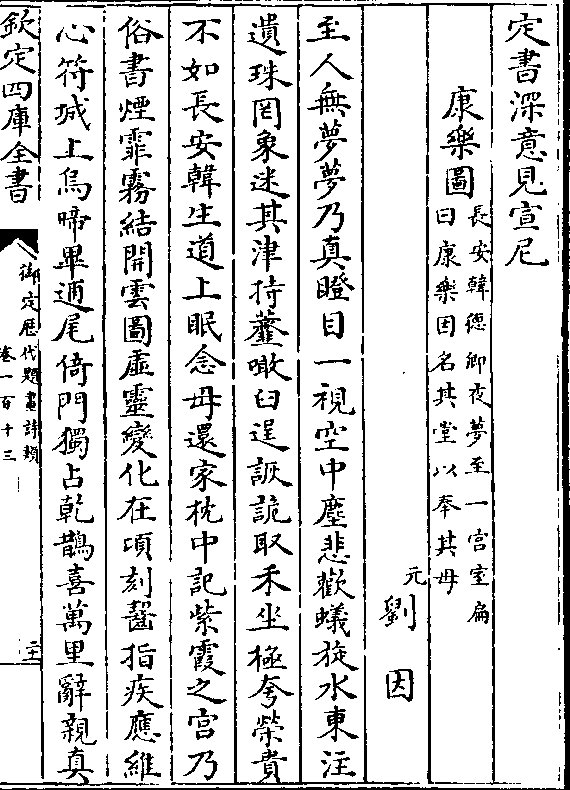 定書深意見宣尼
康樂圖
長安韓德卿夜夢至一宮室扁
曰康樂因名其堂以奉其母
元
劉因
至人無夢夢乃真瞪目一視空中塵悲歡蟻旋水東注
遺珠罔象迷其津持虀噉臼逞詼詭取禾坐極夸榮貴
不如長安韓生道上眠念母還家枕中記紫霞之宮乃
俗書煙霏霧結開雲圖虛靈變化在頃刻齧指疾應維
心符城上烏啼畢逋尾倚門獨占乾鵲喜萬里辭親真
欽定四庫全書
御定歷代題畫詩類
卷一百十三